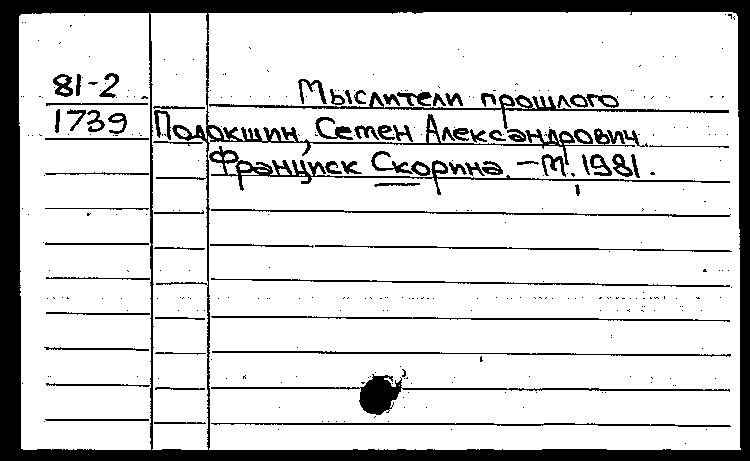 81-2 Мыслители прошлого
1739 Подокшин, Семен Александрович
Франциск Скорина. - М., 1981.